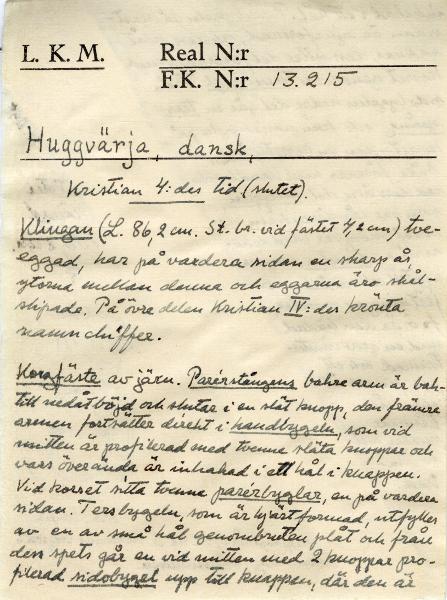 L. K. M.
Real N:r
F.K. N:r 13.215
Huggvärja, dansk,
Kristian 4:des tid (slutet).
Klingan (L. 86,2 cm. St. br. vid fästet 4,2 cm) tve-
eggad, har på vardera sidan en skarp ås,
ytorna mellan denna och eggarna äro skål-
slipade. På övre delen Kristian IV:des krönta
namnchiffer.
Korgfäste av järn. Parérstångens bakre arm är bak-
till nedåtböjd och slutar i en slät knopp, den främre
armen fortsätter direkt i handbygeln, som vid
mitten är profilerad med tvenne släta knoppar och
vars överända är inhakad i ett hål i knappen.
Vid korset sitta tvenne parérbyglar, en på vardera
sidan. Tersbygeln, som är hjärtformad, utfylles
av en av små hål genombruten plåt och från
dess spets går en vid mitten med 2 knoppar pro-
filerad sidobygel upp till knappen, där den är